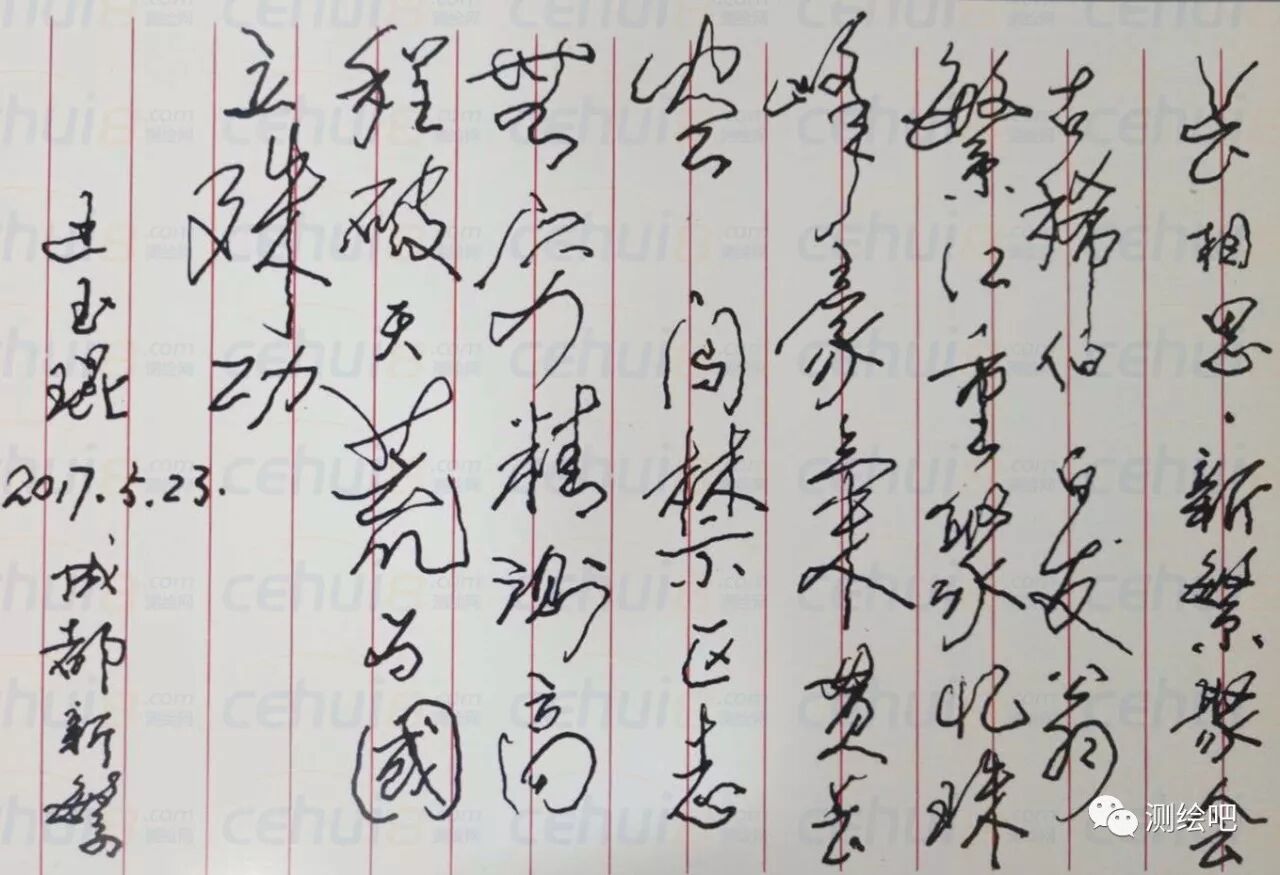 长相思·新繁聚会
古稀伯 白发翁
繁江重聚忆珠
峰豪氣贯长
空 闯禁区志
無穷 精测高
程破天荒为國
立殊功
玉琨
2017.5.23.
成都新繁
cehui8.com
测绘网
测绘吧